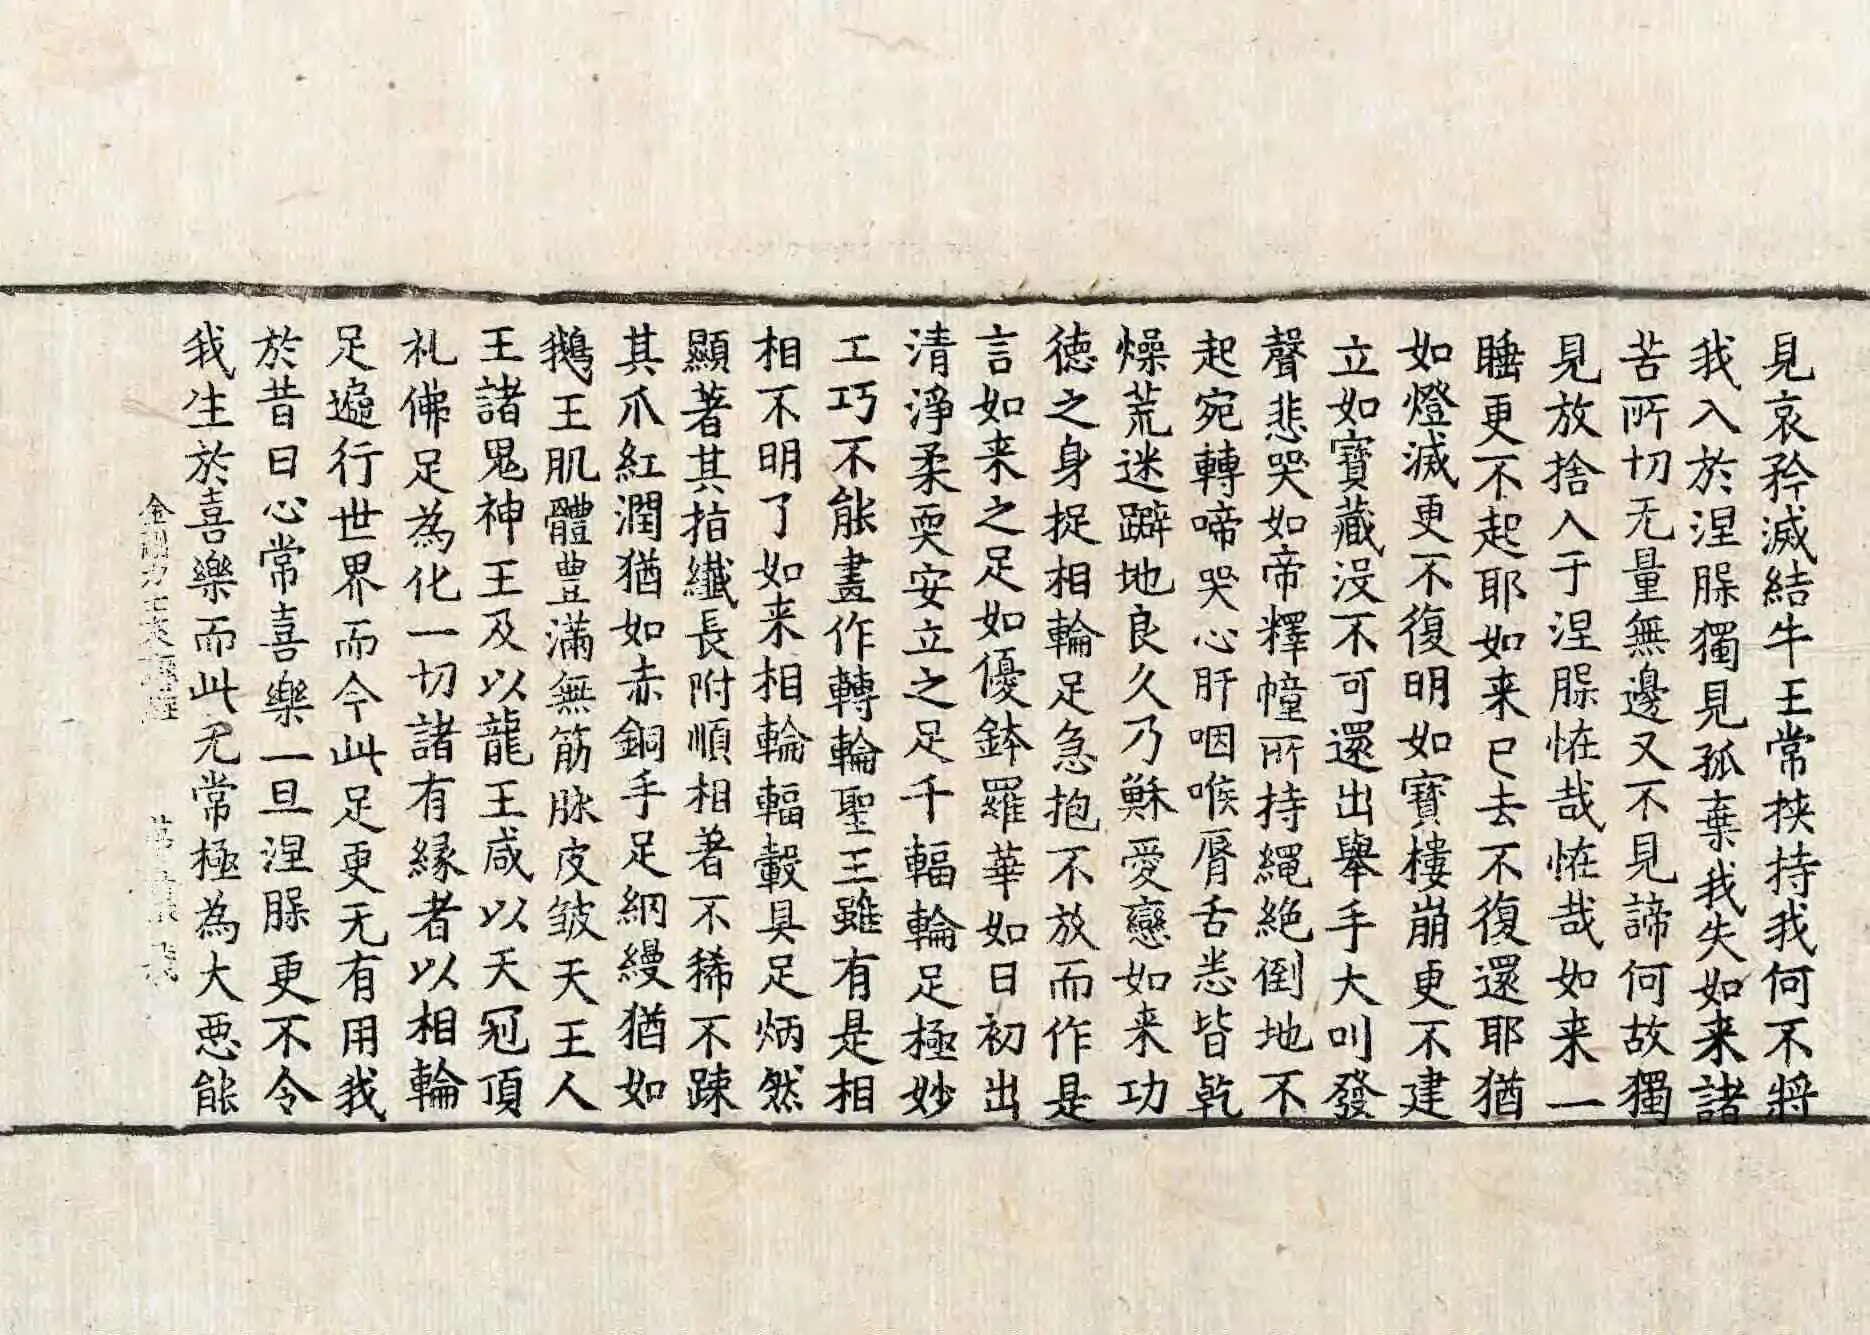 見哀矜滅結牛王常挾持我何不將
我入於涅槃獨見孤棄我失如来諸
苦所切无量無邊又不見諦何故獨
見放捨入于涅槃恠哉恠哉如来一
睡更不起耶如来已去不復還耶猶
如燈滅更不復明如寶樓崩更不建
立如寶藏没不可還出舉手大叫發
聲悲哭如帝釋幢所持繩絶倒地不
起宛轉啼哭心肝咽喉脣舌悉皆乾
燥荒迷躃地良久乃穌愛戀如来功
徳之身捉相輪足急抱不放而作是
言如来之足如優鉢羅華如日初出
清淨柔耎安立之足千輻輪足極妙
工巧不能畫作轉輪聖王雖有是相
相不明了如来相輪輻轂具足炳然
顯著其指纖長附順相著不稀不踈
其爪紅潤猶如赤銅手足網縵猶如
鵝王肌體豊滿無筋脉皮皺天王人
王諸鬼神王及以龍王咸以天冠頂
礼佛足為化一切諸有緣者以相輪
足遍行世界而今此足更无有用我
於昔日心常喜樂一旦涅槃更不令
我生於喜樂而此无常極為大惡能